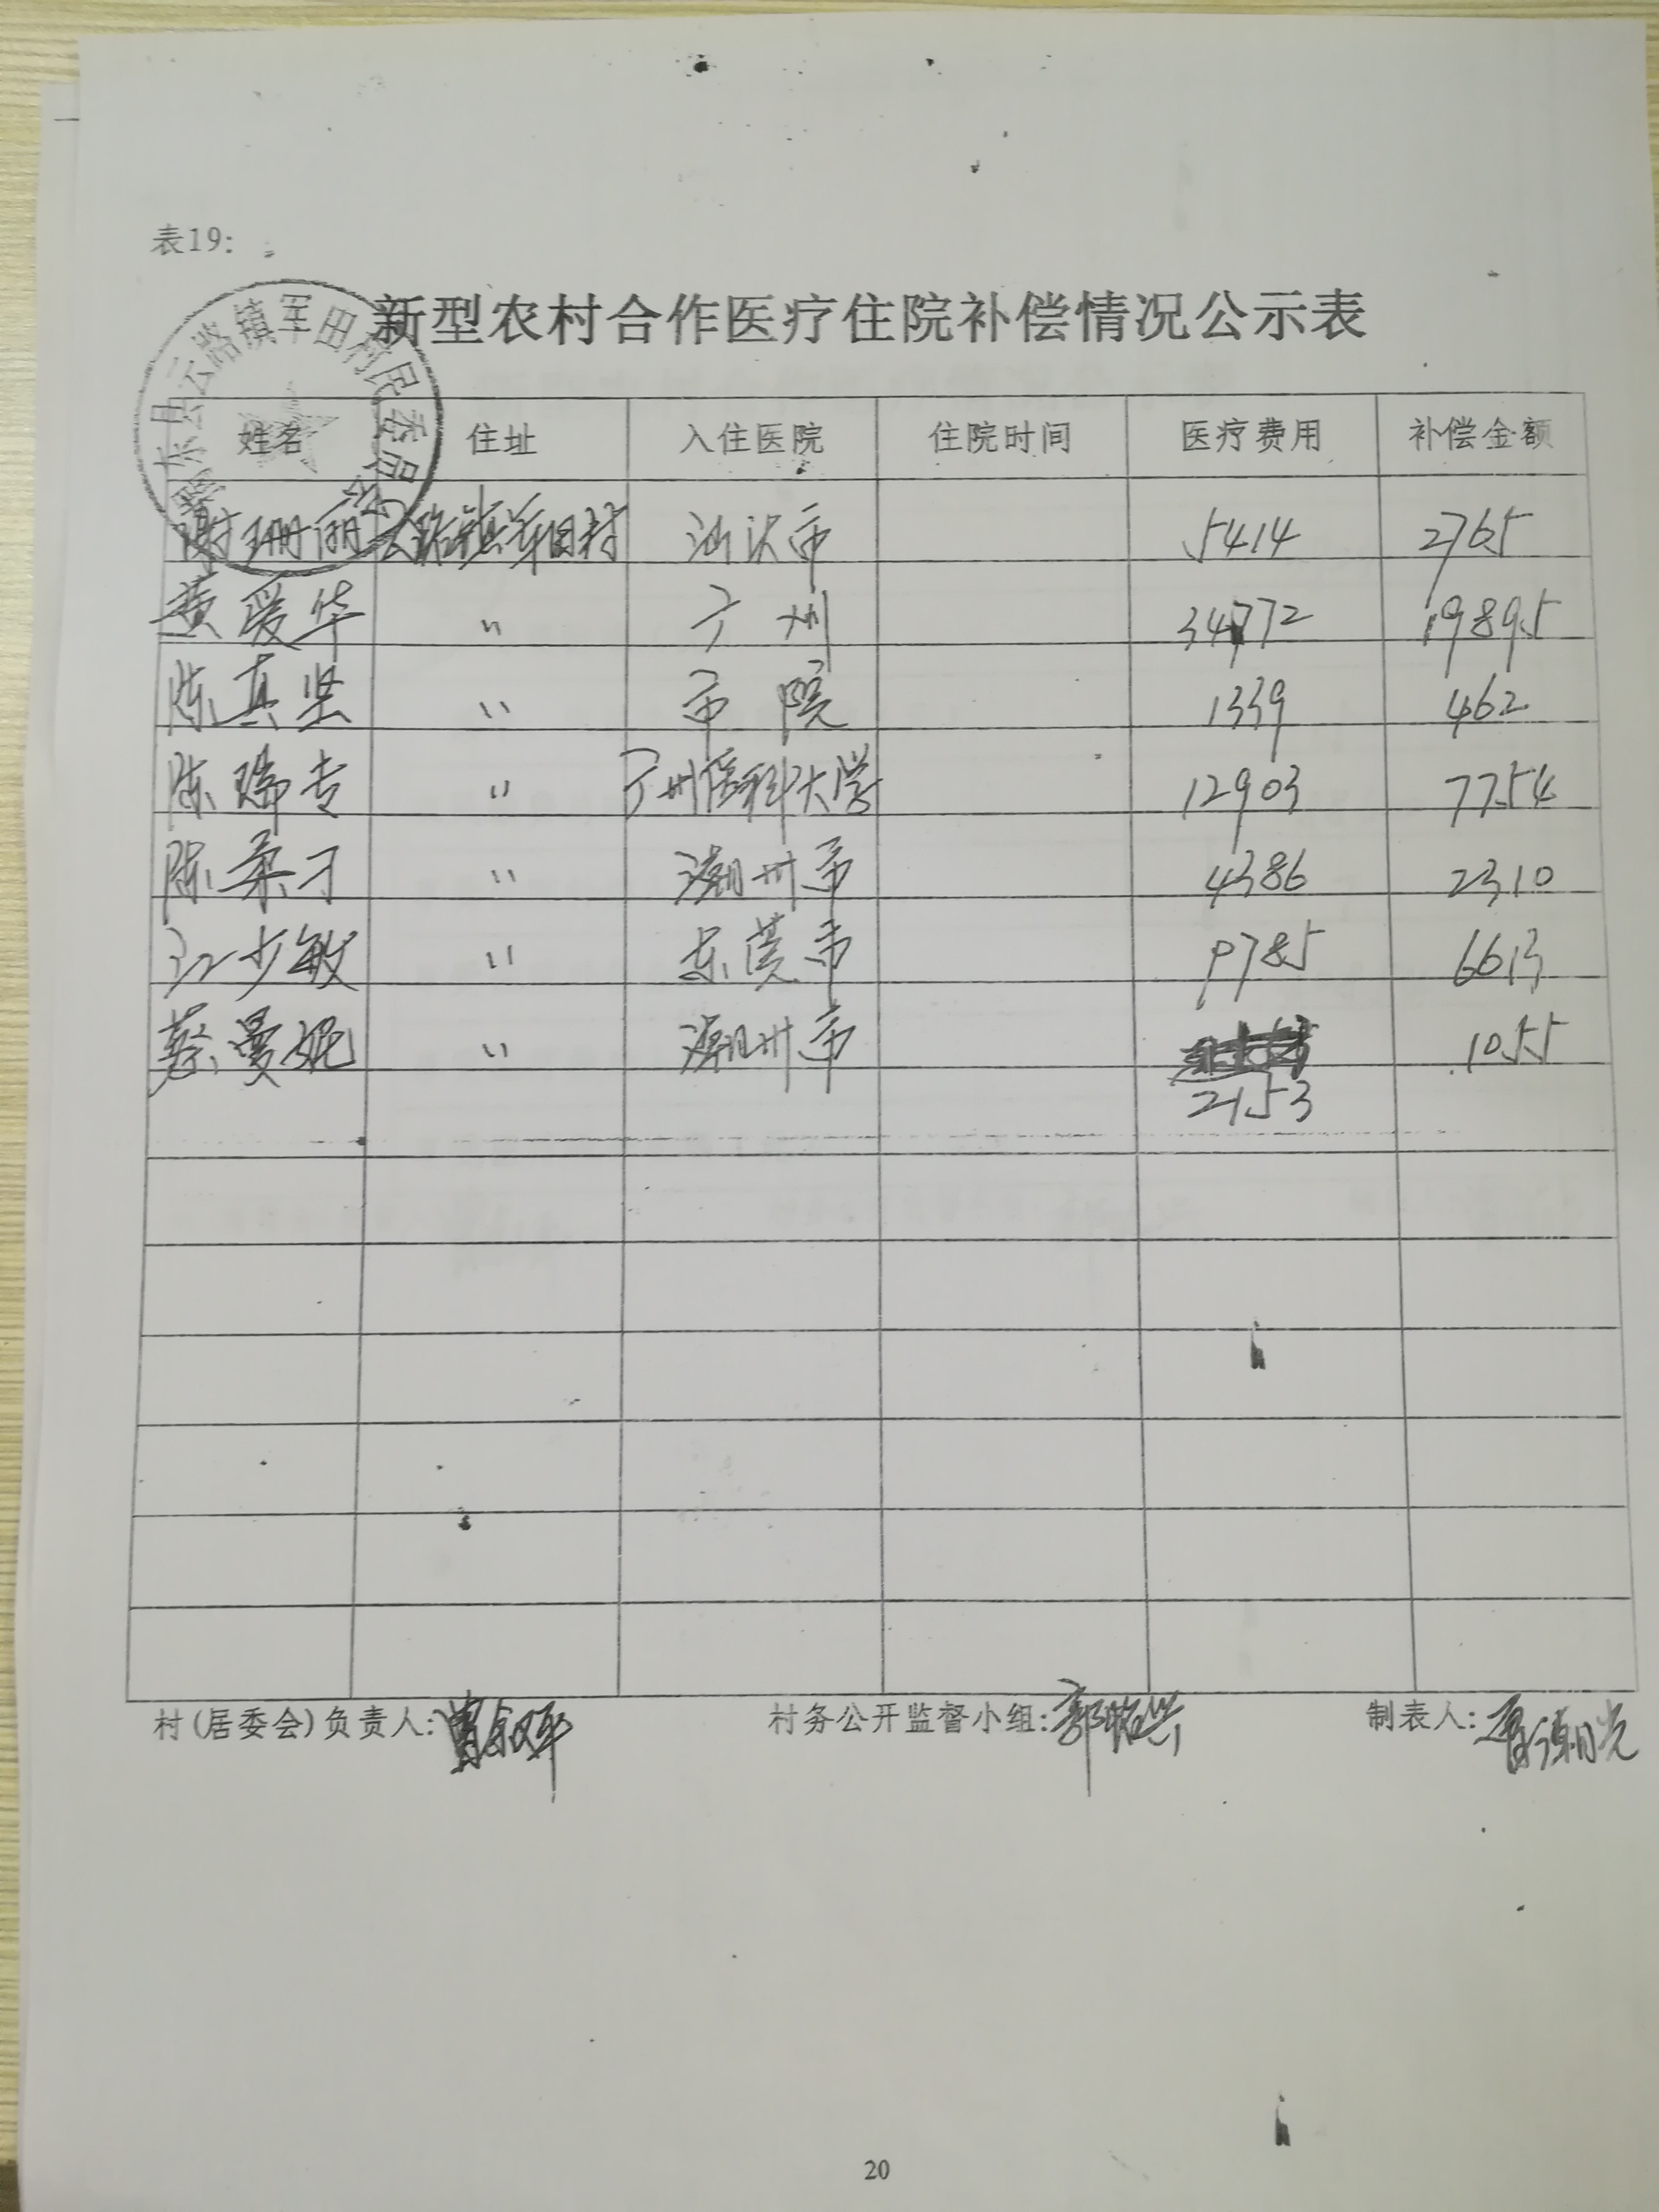 表19:
新型农村合作医疗住院补偿情况公示表
揭东县云路镇军田村民委员会
姓名 住址 入住医院 住院时间 医疗费用 补偿金额
谢珊丽 云路镇军田村 汕头市 5414 2765
黄爱华 〃 广州 34772 19895
陈真坚 〃 市院 1339 462
陈瑞专 〃 广州医科大学 12903 7754
陈柔 〃 潮州市 4386 2310
江少敏 〃 东莞市 9785 6613
蔡曼妮 〃 潮州市 1055
2153
村(居委会)负责人: 村务公开监督小组: 制表人:
20